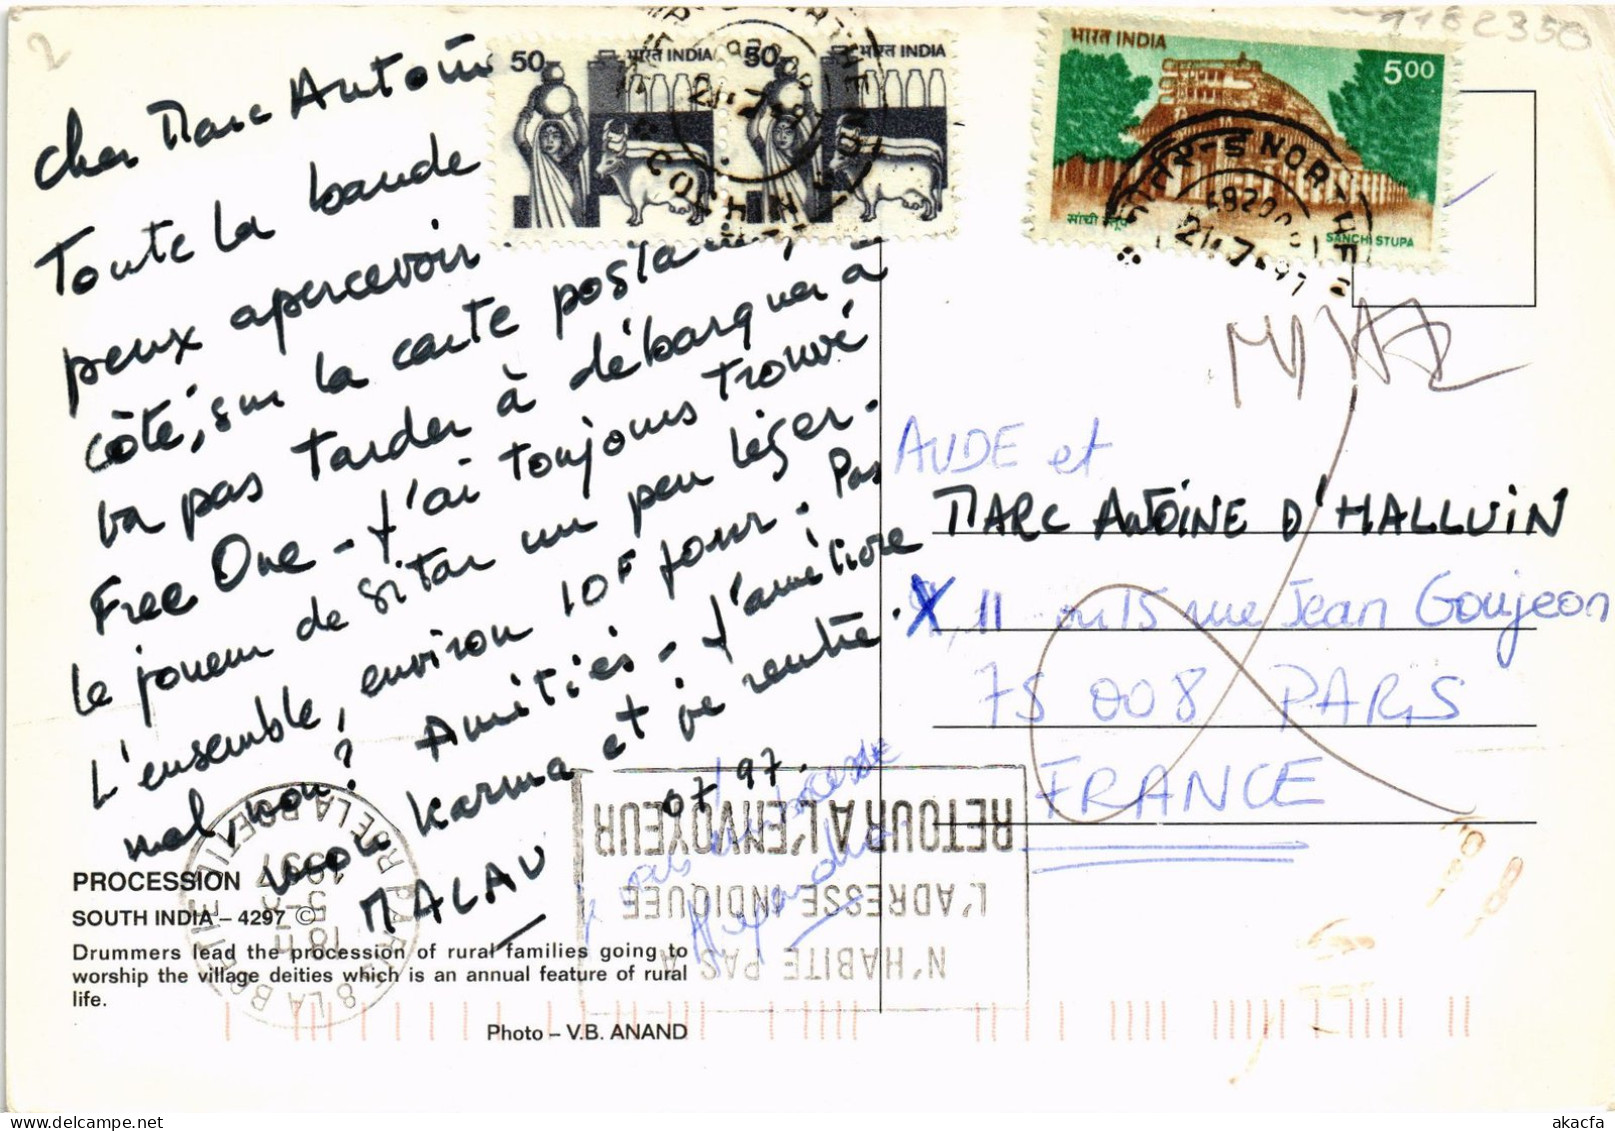 2
1162350
cher Marc Antoine
Toute la bande
peux apercevoir
côté, sur la carte postale,
va pas tarder à débarquer à
Free One - J'ai toujours trouvé
le joueur de sitar un peu léger.
L'ensemble, environ 10F jour. Pas
mal, non? Amitiés - J'améliore
mon karma et je rentre.
MALAV
07 97.
50 भारत INDIA
50 भारत INDIA
भारत INDIA
5.00
सांची स्तूप
SANCHI STUPA
21.7.97
682028
21.7.97
AUDE et
MARC ANTOINE D'HALLUIN
11 ou 15 rue Jean Goujeon
75 008 PARIS
FRANCE
RETOUR A L'ENVOYEUR
L'ADRESSE INDIQUEE
N'HABITE PAS A
PARIS 8 LA BOETIE
R DE LA BOETIE
18H
1997
PROCESSION
SOUTH INDIA – 4297 ©
Drummers lead the procession of rural families going to
worship the village deities which is an annual feature of rural
life.
Photo – V.B. ANAND
akacfa